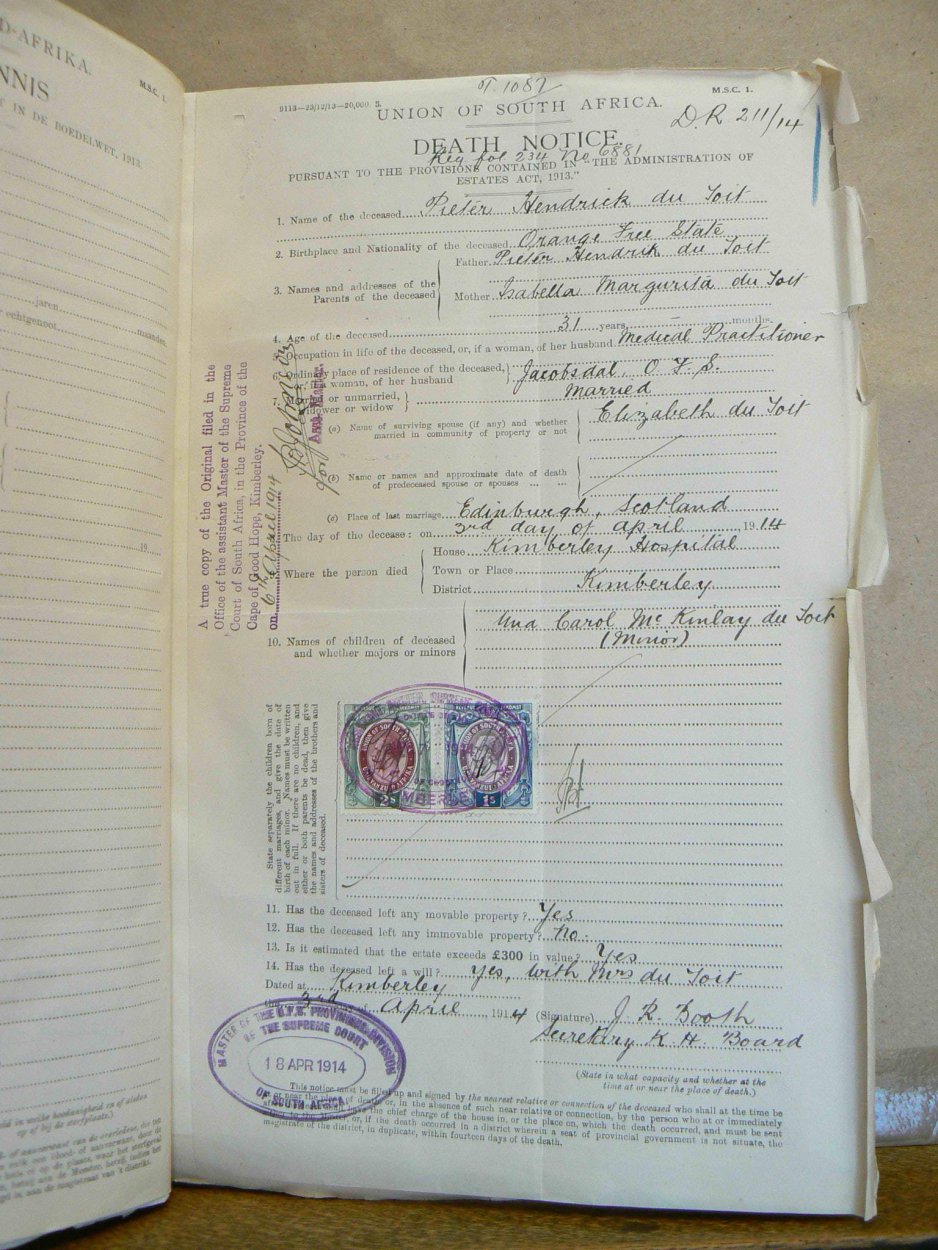 D-AFRIKA.
M.S.C. 1.
NNIS
T IN DE BOEDELWET, 1913.
jaren
maanden.
echtgenoot
19
T. 1082
M.S.C. 1.
9113—23/12/13—20,000 S.
UNION OF SOUTH AFRICA.
D.R. 211/14
DEATH NOTICE
Reg fol 234 No 6881
PURSUANT TO THE PROVISIONS CONTAINED IN "THE ADMINISTRATION OF
ESTATES ACT, 1913."
1. Name of the deceased Pieter Hendrick du Toit
2. Birthplace and Nationality of the deceased Orange Free State
3. Names and addresses of the Parents of the deceased
Father Pieter Hendrik du Toit
Mother Isabella Margurita du Toit
4. Age of the deceased 31 years months.
5. Occupation in life of the deceased, or, if a woman, of her husband Medical Practitioner
6. Ordinary place of residence of the deceased,
or, if a woman, of her husband
Jacobsdal O F S.
7. Married or unmarried,
widower or widow
Married
(a) Name of surviving spouse (if any) and whether
married in community of property or not
Elizabeth du Toit
(b) Name or names and approximate date of death
of predeceased spouse or spouses ... ...
(c) Place of last marriage Edinburgh, Scotland
The day of the decease: on 3rd day of April 1914
Where the person died
House Kimberley Hospital
Town or Place
District Kimberley
10. Names of children of deceased
and whether majors or minors
Una Carol McKinlay du Toit
(Minor)
A true copy of the Original filed in the
Office of the assistant Master of the Supreme
Court of South Africa, in the Province of the
Cape of Good Hope, Kimberley.
on 6th April 1914
State separately the children born of
different marriages, and give the date of
birth of each minor. Names must be written
out in full. If there are no children, and
either or both parents be dead, then give
the names and addresses of the brothers and
sisters of deceased.
UNION OF SOUTH AFRICA
2S
UNION OF SOUTH AFRICA
1S
11. Has the deceased left any movable property? Yes
12. Has the deceased left any immovable property? No
13. Is it estimated that the estate exceeds £300 in value? Yes
14. Has the deceased left a will? Yes, with Mrs du Toit
Dated at Kimberley
the 3rd day of April 1914
(Signature) J. R. Booth
Secretary K. H. Board
(State in what capacity and whether at the
time at or near the place of death.)
MASTER OF THE O.F.S. PROVINCIAL DIVISION
OF THE SUPREME COURT
18 APR 1914
OF SOUTH AFRICA
This notice must be filled up and signed by the nearest relative or connection of the deceased who shall at the time be
at or near the place of death, or, in the absence of such near relative or connection, by the person who at or immediately
have the chief charge of the house in, or the place on, which the death occurred, and must be sent
or, if the death occurred in a district wherein a seat of provincial government is not situate, the
magistrate of the district, in duplicate, within fourteen days of the death.